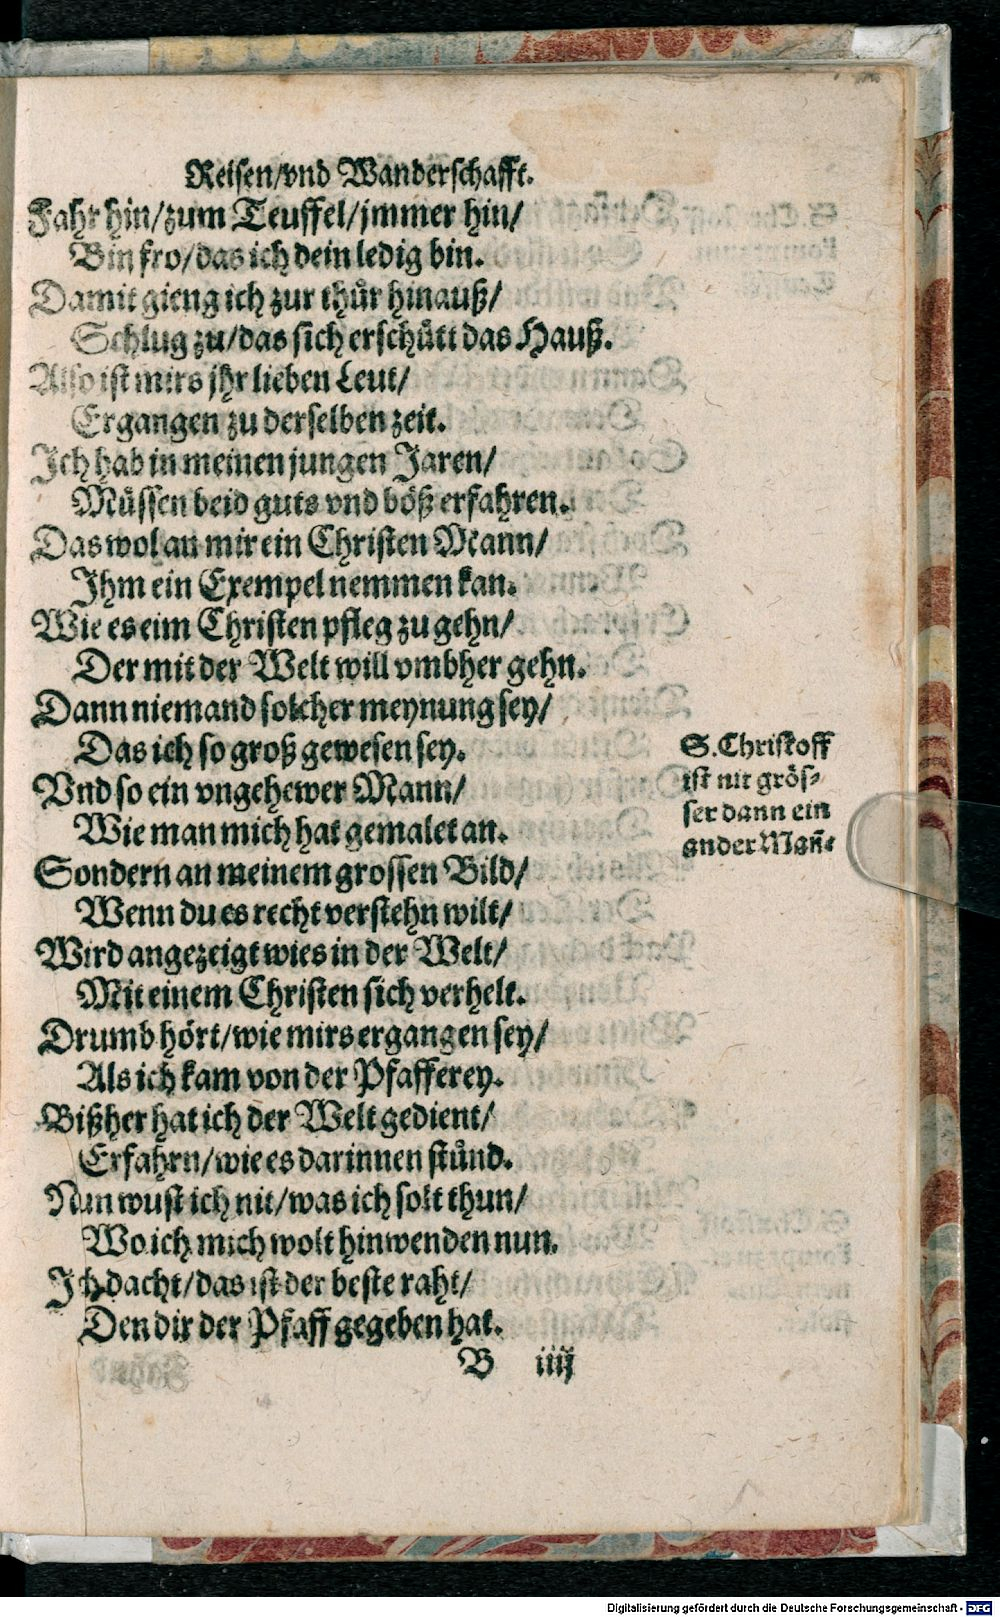 Reisen/vnd Wanderschafft.
Fahr hin/zum Teuffel/jmmer hin/
Bin fro/das ich dein ledig bin.
Damit gieng ich zur thuͤr hinauß/
Schlug zu/das sich erschuͤtt das Hauß.
Also ist mirs jhr lieben Leut/
Ergangen zu derselben zeit.
Ich hab in meinen jungen Jaren/
Muͤssen beid guts vnd boͤß erfahren.
Das wol an mir ein Christen Mann/
Ihm ein Exempel nemmen kan.
Wie es eim Christen pfleg zu gehn/
Der mit der Welt will vmbher gehn.
Dann niemand solcher meynung sey/
Das ich so groß gewesen sey.
Vnd so ein vngehewer Mann/
Wie man mich hat gemalet an.
Sondern an meinem grossen Bild/
Wenn du es recht verstehn wilt/
Wird angezeigt wies in der Welt/
Mit einem Christen sich verhelt.
Drumb hoͤrt/wie mirs ergangen sey/
Als ich kam von der Pfafferey.
Bißher hat ich der Welt gedient/
Erfahrn/wie es darinnen stuͤnd.
Nun wust ich nit/was ich solt thun/
Wo ich mich wolt hinwenden nun.
Ich dacht/das ist der beste raht/
Den dir der Pfaff gegeben hat.
B iiij
S. Christoff
ist nit groͤs-
ser dann ein
ander Mañ.
Digitalisierung gefördert durch die Deutsche Forschungsgemeinschaft - DFG